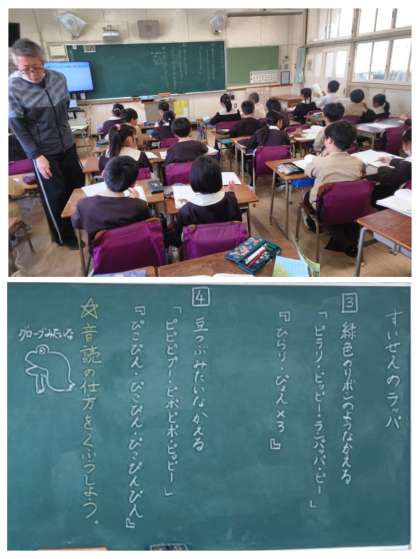 すいせんのラッパ
3 緑色のリボンのようなかえる
「ピラリ・ピッピー・ランパッパ・ピー」
『ひらり・ぴょん×3』
4 豆つぶみたいなかえる
「ピピピプア・ピポピポ・ピッピー」
『ぴこぴょん・ぴこぴょん・ぴこぴょんぴょん』
☆音読の仕方をくふうしよう。
グローブみたいな